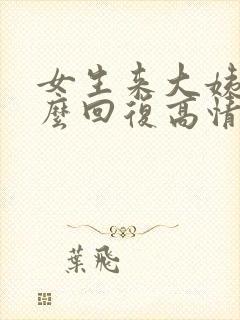 女生来大姨
麼回復高情
葉飛